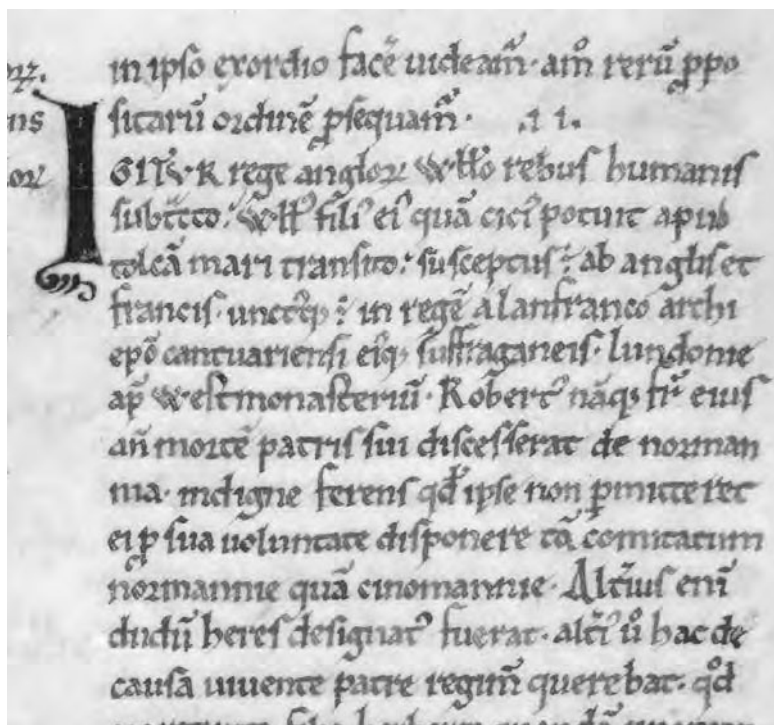 in ipso exordio facē uideam̄· am̊ rerū ꝓpo
sitarū ordinē ꝓsequam̄· .ii.
IGITVR rege angloꝝ Włło rebus humanis
subtᵃcto. Włłꝰ filiꝰ eiꝰ quā
tolcā mari transito. susceptus ÷ ab anglis et
francis· ÷ in regē a lanfranco archi
epō cantuariensi eiꝰq; suffraganeis· lundonie
ap̄ Westmonasteriū· Robertꝰ nāq; fr̄ eius
an̄ mortē patris sui discesserat de norman
nia· indigne ferens qđ ipse non ꝑmitteret
ei ꝓ sua uoluntate disponere tā comitatum
normannie quā cinomannie· Alteriꝰ enī
dudū heres designatꝰ fuerat· u̇o hac de
causā uiuente patre regim̄ querebat· qđ